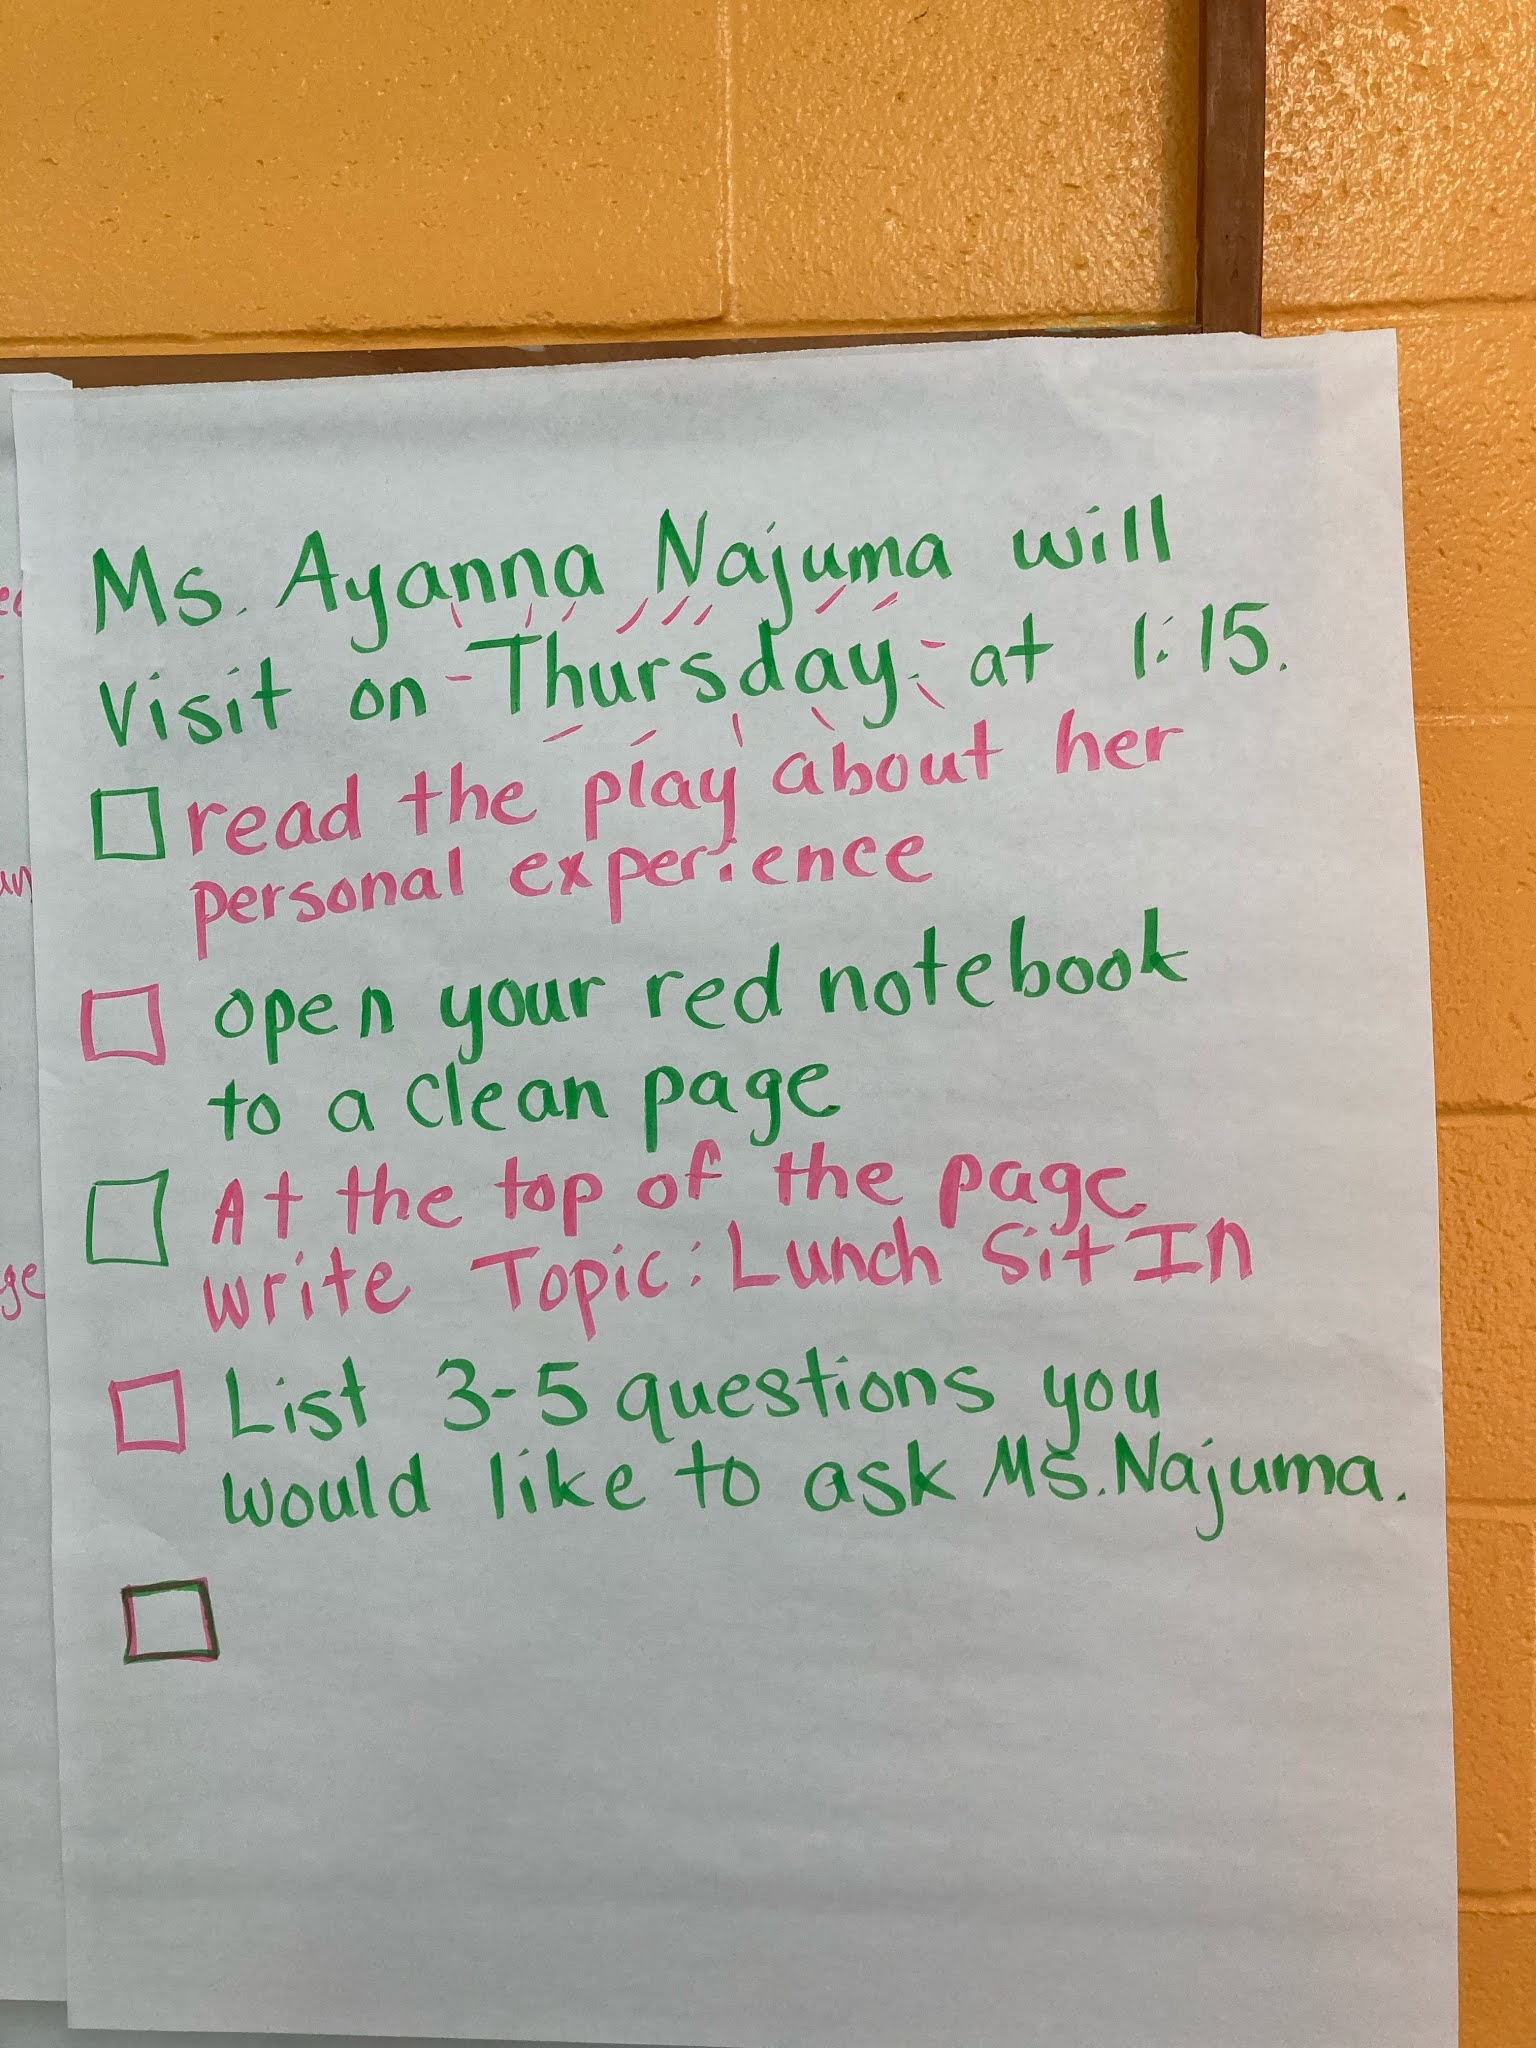 Ms. Ayanna Najuma will
Visit on Thursday at 1:15.
read the play about her
personal experience
open your red notebook
to a clean page
At the top of the page
write Topic: Lunch Sit In
List 3-5 questions you
would like to ask Ms. Najuma.